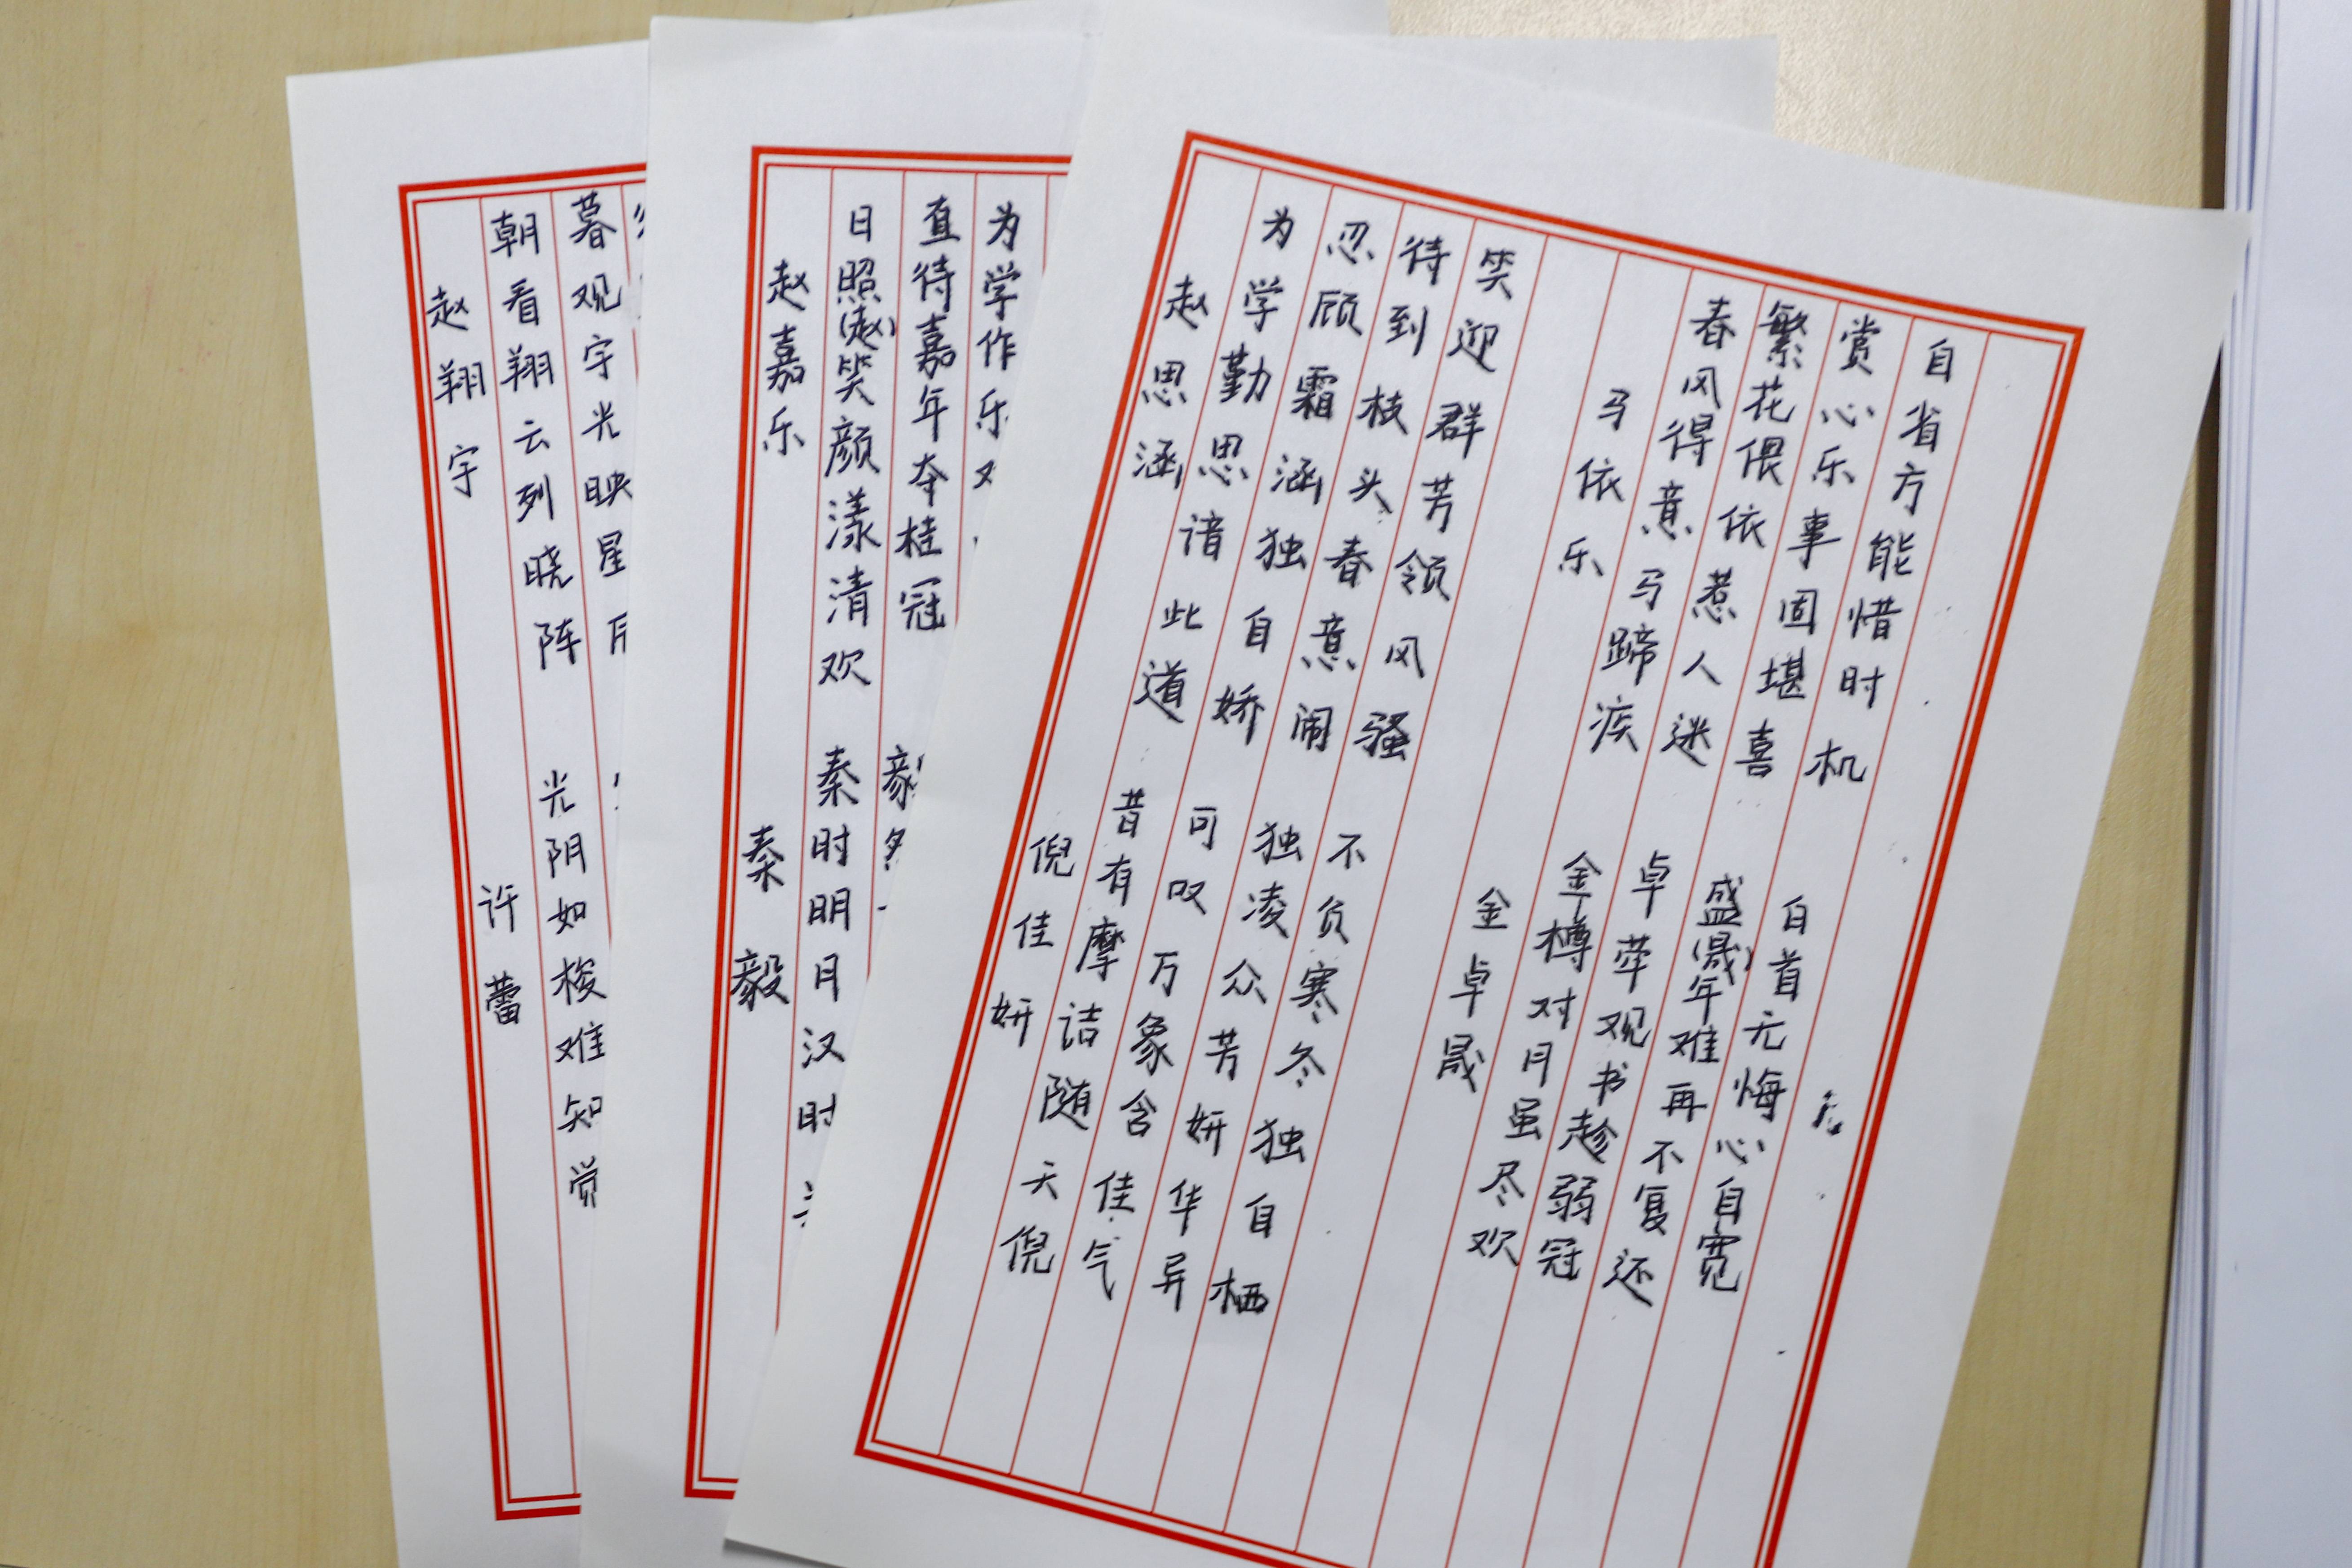 赵翔宇
朝看翔云列晓阵
暮观宇光映星
许蕾
光阴如梭难知觉
赵嘉乐
日照(赵)笑颜漾清欢
直待嘉年夺桂冠
为学作乐
秦毅
秦时明月汉时
毅
赵思涵
为学勤思谙此道
忍顾霜涵独自娇
待到枝头春意闹
笑迎群芳领风骚
马依乐
春风得意马蹄疾
繁花偎依惹人迷
赏心乐事固堪喜
自省方能惜时机
倪佳妍
昔有摩诘随天倪
可叹万象含佳气
独凌众芳妍华异
不负寒冬独自栖
金卓晟
金樽对月虽尽欢
卓荦观书趁弱冠
盛(晟)年难再不复还
白首无悔心自宽